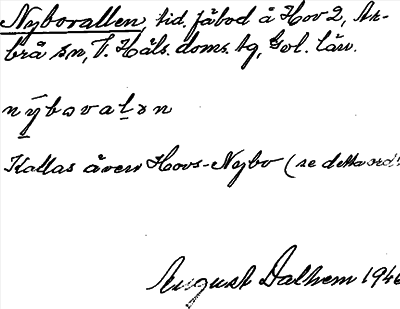 Nybovallen, tid. fäbod å Hov 2, Ar-
brå sn, V. Häls. doms. tg, Gol. län.
nybovalən
Kallas även Hovs-Nybo (se detta ord)
August Dalhem 1946